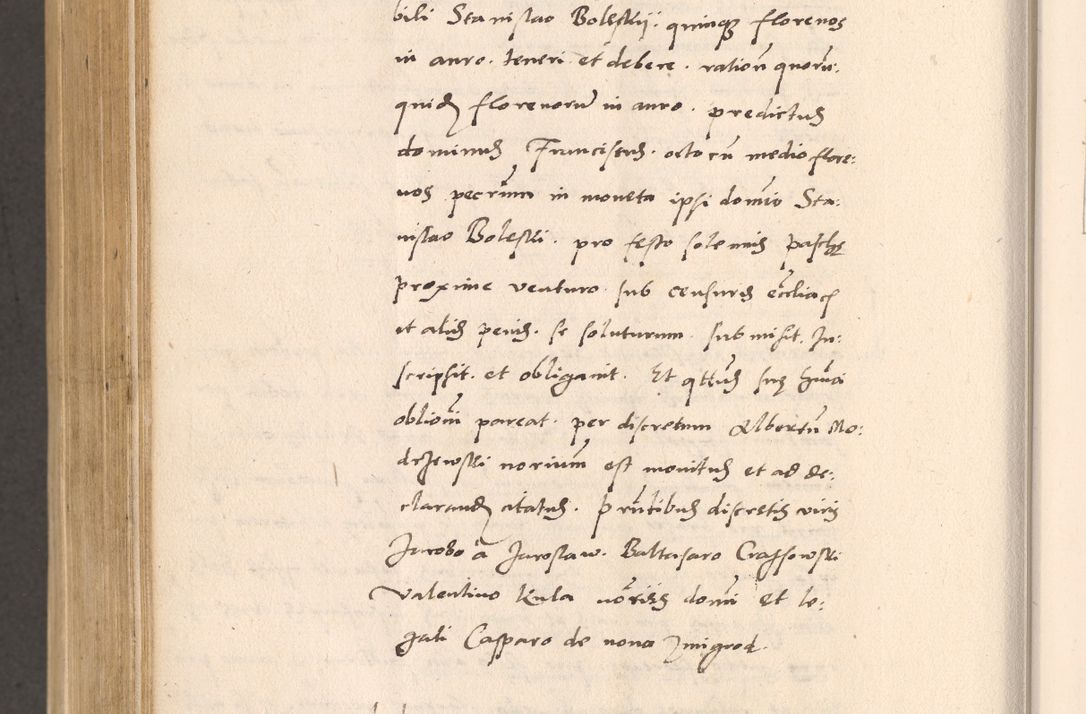 bili Stanislao Boleskij. quinqꝫ florenos
in auro. teneri et debere. ration̄ quorū.
quidē florenorū in auro. predictus
dominus Franciscus. octo cū medio flore:
nos pecūia in moneta ipsi domīo Sta:
nislao Boleski. pro festo solemnis Paschę
proxime venturo. sub censuris eccliacis
et aliis penis. se soluturum. submisit. In:
scripsit. et obligauit. Et q̄ttus suę hmōi
oblioni pareat. per discretum Albertū Mo:
drzewski norium est monitus et ad de:
clarandū citatus. Pn̄tibus discretis viris
Jacobo a Jaroslaw. Baltasaro Crassowski
Valentino Kula no͞riis domī et le:
gali Casparo de noua Zmigrod.